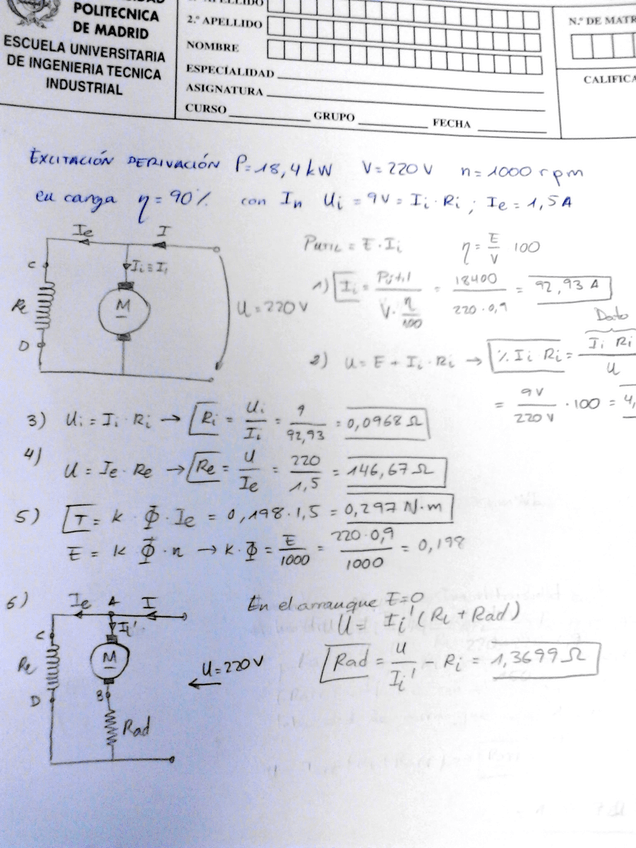 POLITECNICA
DE MADRID
ESCUELA UNIVERSITARIA
DE INGENIERIA TECNICA
INDUSTRIAL
2.º APELLIDO
NOMBRE
ESPECIALIDAD
ASIGNATURA
CURSO GRUPO FECHA
N.º DE MATR
CALIFICA
EXCITACIÓN DERIVACIÓN P=18,4 kW V=220 V n=1000 rpm
en carga η=90% con In Ui = 9V = Ii·Ri ; Ie = 1,5 A
Ie I
Ii
C
Re
M
D
U=220V
Putil = E·Ii η = E/V 100
1) Ii = Putil / (V·η/100) = 18400 / (220·0,9) = 92,93 A
Dato
2) U = E + Ii·Ri → % Ii Ri = Ii Ri / U
= 9V / 220V · 100 = 4,
3) Ui = Ii·Ri → Ri = Ui/Ii = 9/92,93 = 0,0968 Ω
4) U = Ie·Re → Re = U/Ie = 220/1,5 = 146,67 Ω
5) T = K·Φ·Ie = 0,198·1,5 = 0,297 N·m
E = K Φ·n → K·Φ = E/1000 = 220·0,9/1000 = 0,198
6) Ie A I
Ii'
C
Re
M
D
B
Rad
U=220V
En el arranque E=0
U = Ii' (Ri + Rad)
Rad = U/Ii' - Ri = 1,3699 Ω